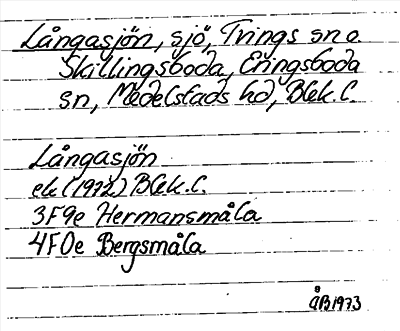 Långasjön, sjö, Tvings sn o.
Skillingsboda, Eringsboda
sn, Medelstads hd, Blek. l.
Långasjön
ek (1972) Blek. l.
3F9e Hermansmåla
4F0e Bergsmåla
ÅB 1973